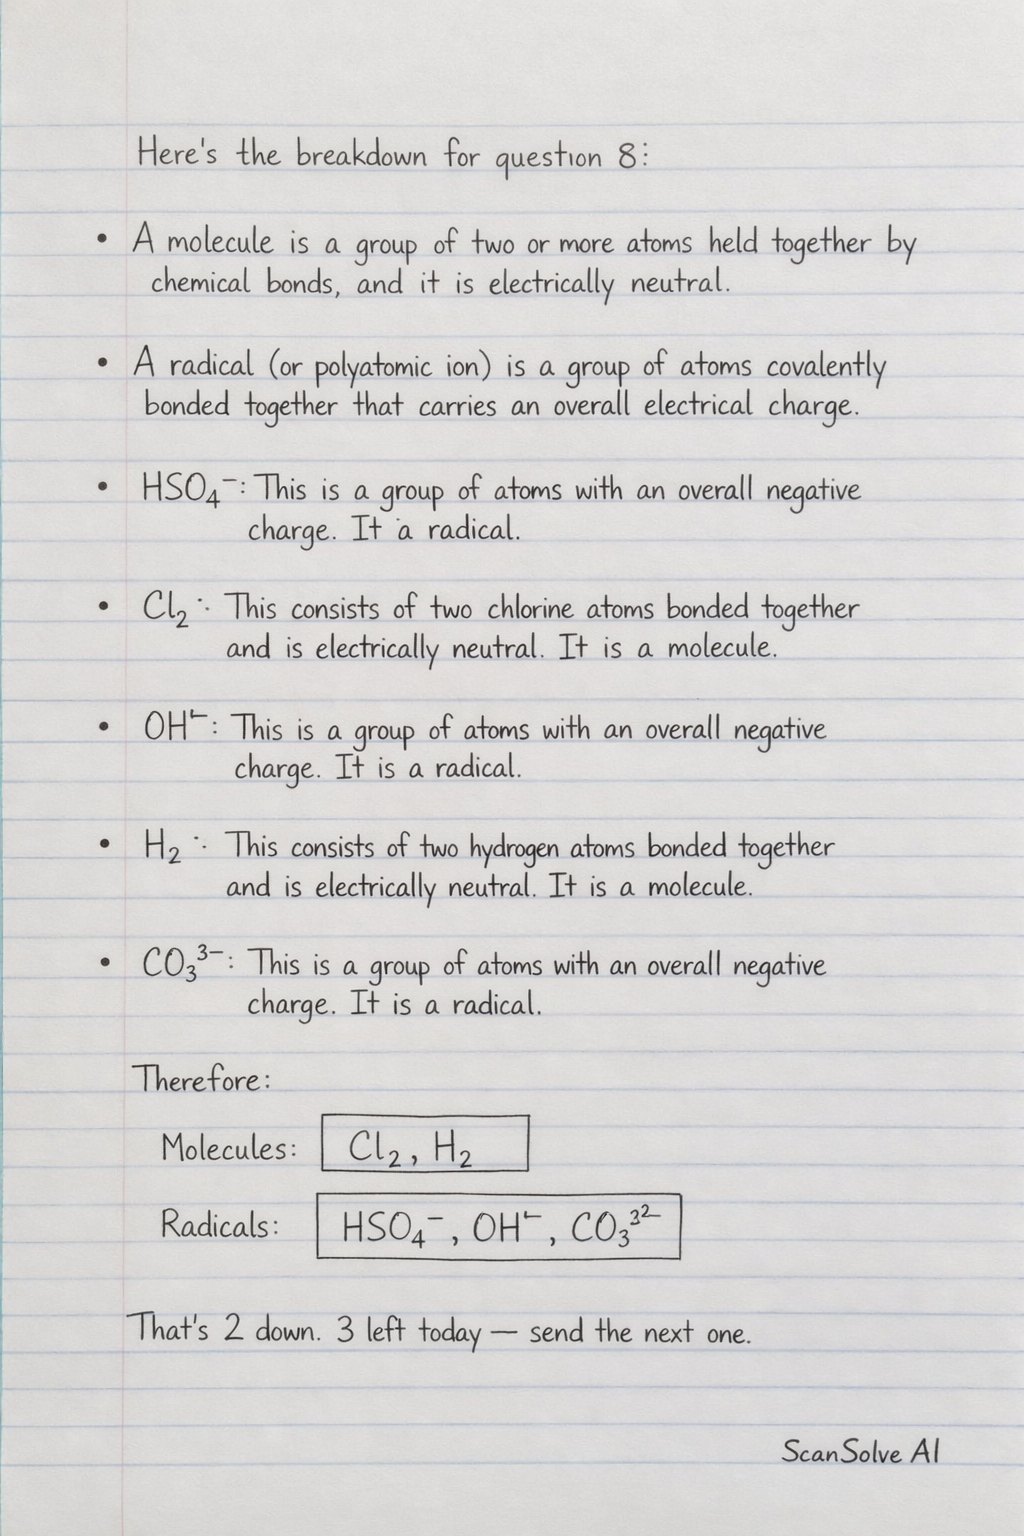 Here's the breakdown for question 8:
• A molecule is a group of two or more atoms held together by
chemical bonds, and it is electrically neutral.
• A radical (or polyatomic ion) is a group of atoms covalently
bonded together that carries an overall electrical charge.
• HSO₄⁻: This is a group of atoms with an overall negative
charge. It a radical.
• Cl₂: This consists of two chlorine atoms bonded together
and is electrically neutral. It is a molecule.
• OH⁻: This is a group of atoms with an overall negative
charge. It is a radical.
• H₂: This consists of two hydrogen atoms bonded together
and is electrically neutral. It is a molecule.
• CO₃³⁻: This is a group of atoms with an overall negative
charge. It is a radical.
Therefore:
Molecules: Cl₂, H₂
Radicals: HSO₄⁻, OH⁻, CO₃³²⁻
That's 2 down. 3 left today — send the next one.
ScanSolve AI